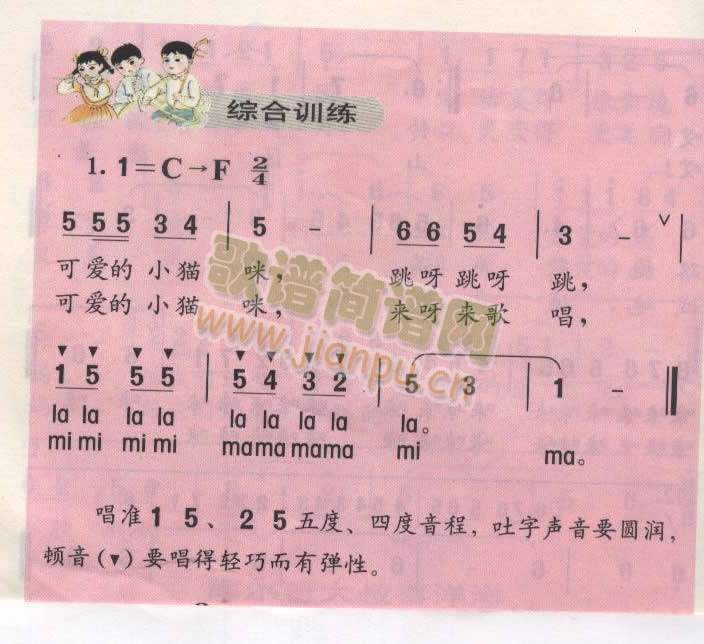 综合训练
1. 1=C→F 2/4
5 5 5 3 4 | 5 - | 6 6 5 4 | 3 - ∨ |
可爱的 小猫 咪, 跳呀 跳呀 跳,
可爱的 小猫 咪, 来呀 来歌 唱,
▼ ▼ ▼ ▼ ▼ ▼ ▼ ▼
1 5 5 5 | 5 4 3 2 | 5 3 | 1 - ‖
la la la la la la la la la。
mi mi mi mi ma ma ma ma mi ma。
唱准 1 5、2 5 五度、四度音程,吐字声音要圆润,
顿音(▼)要唱得轻巧而有弹性。
歌谱简谱网
www.jianpu.cn